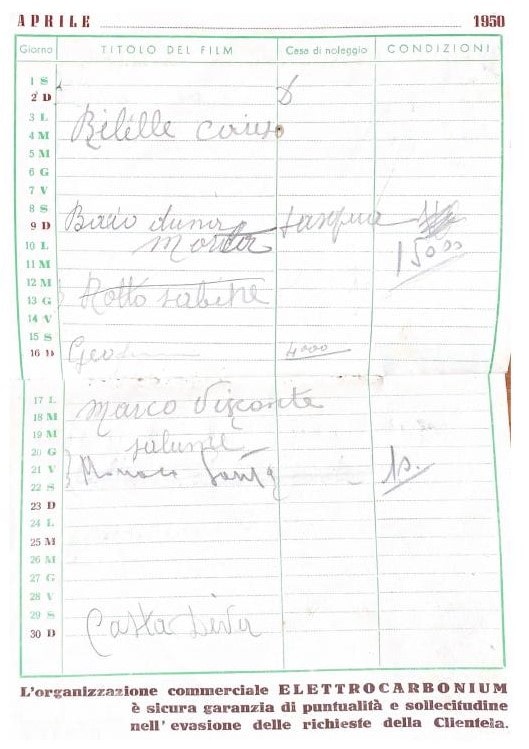 APRILE 1950
Giorno TITOLO DEL FILM Casa di noleggio CONDIZIONI
1 S
2 D
3 L
4 M
5 M
6 G
7 V
8 S
9 D Bacio duna
10 L 15000
11 M
12 M
13 G Rotto
14 V
15 S
16 D Geo 4000
17 L Marco Visconte
18 M
19 M
20 G
21 V Monaco Santa
22 S
23 D
24 L
25 M
26 M
27 G
28 V
29 S
30 D Casta Diva
L'organizzazione commerciale ELETTROCARBONIUM
è sicura garanzia di puntualità e sollecitudine
nell'evasione delle richieste della Clientela.